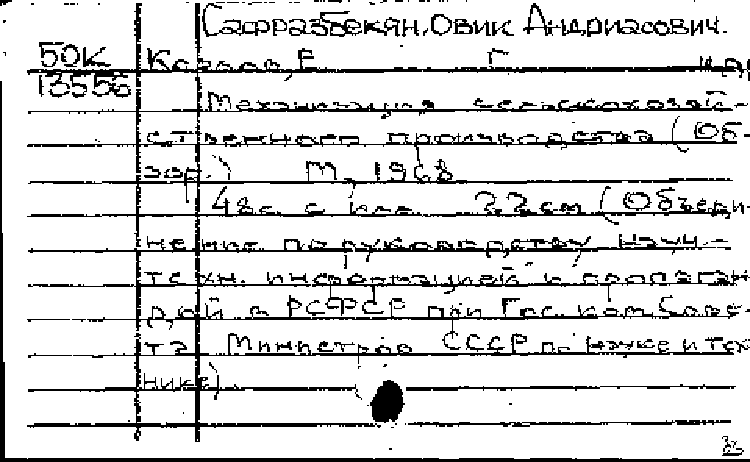 Сафразбекян, Овик Андриасович.
50К Козлов, Е Г и др
13556
Механизация сельскохозяй-
ственного производства (Об-
зор.) М., 1968
48с. с илл. 22см (Объеди-
нение по руководству науч-
техн. информацией и пропаган
дой в РСФСР при Гос. ком Сове-
та Министров СССР по науке и тех
нике)